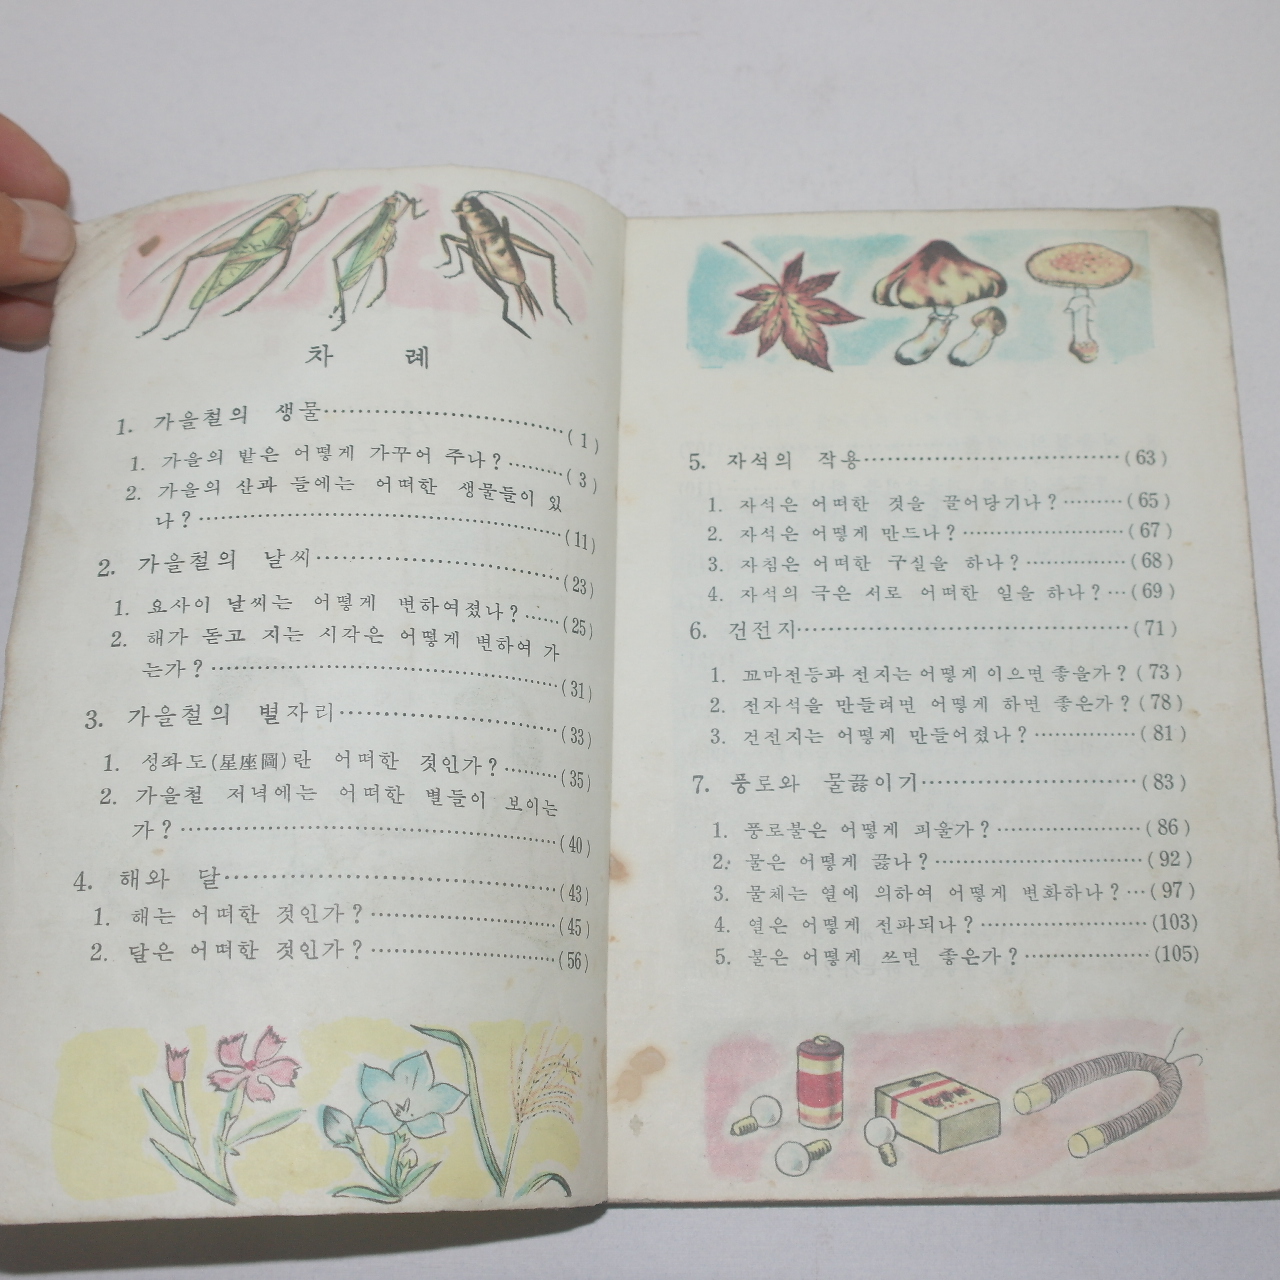 차 례
1. 가을철의 생물……………………(1)
1. 가을의 밭은 어떻게 가꾸어 주나?………(3)
2. 가을의 산과 들에는 어떠한 생물들이 있
나?……………………………………(11)
2. 가을철의 날씨……………………(23)
1. 요사이 날씨는 어떻게 변하여졌나?……(25)
2. 해가 돋고 지는 시각은 어떻게 변하여 가
는가?……………………………………(31)
3. 가을철의 별자리……………………(33)
1. 성좌도(星座圖)란 어떠한 것인가?………(35)
2. 가을철 저녁에는 어떠한 별들이 보이는
가?……………………………………(40)
4. 해와 달……………………………(43)
1. 해는 어떠한 것인가?…………………(45)
2. 달은 어떠한 것인가?…………………(56)
5. 자석의 작용……………………………(63)
1. 자석은 어떠한 것을 끌어당기나?………(65)
2. 자석은 어떻게 만드나?…………………(67)
3. 자침은 어떠한 구실을 하나?……………(68)
4. 자석의 극은 서로 어떠한 일을 하나?…(69)
6. 건전지……………………………………(71)
1. 꼬마전등과 전지는 어떻게 이으면 좋을가?(73)
2. 전자석을 만들려면 어떻게 하면 좋은가?(78)
3. 건전지는 어떻게 만들어졌나?……………(81)
7. 풍로와 물끓이기………………………(83)
1. 풍로불은 어떻게 피울가?………………(86)
2. 물은 어떻게 끓나?………………………(92)
3. 물체는 열에 의하여 어떻게 변화하나?…(97)
4. 열은 어떻게 전파되나?…………………(103)
5. 불은 어떻게 쓰면 좋은가?………………(105)